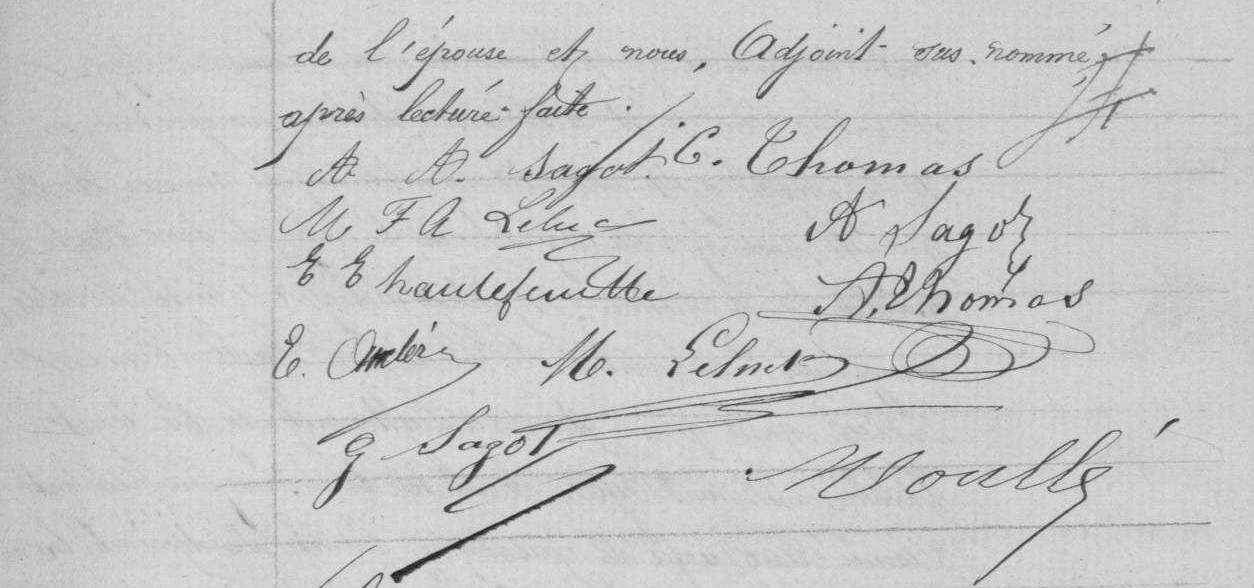 de l'épouse et nous, Adjoint sus-nommé,
après lecture faite.
A A. Sagot. C. Thomas
M F A A Sagot
E E hautefeuille A. Thomas
E. M.
g Sagot Moullé